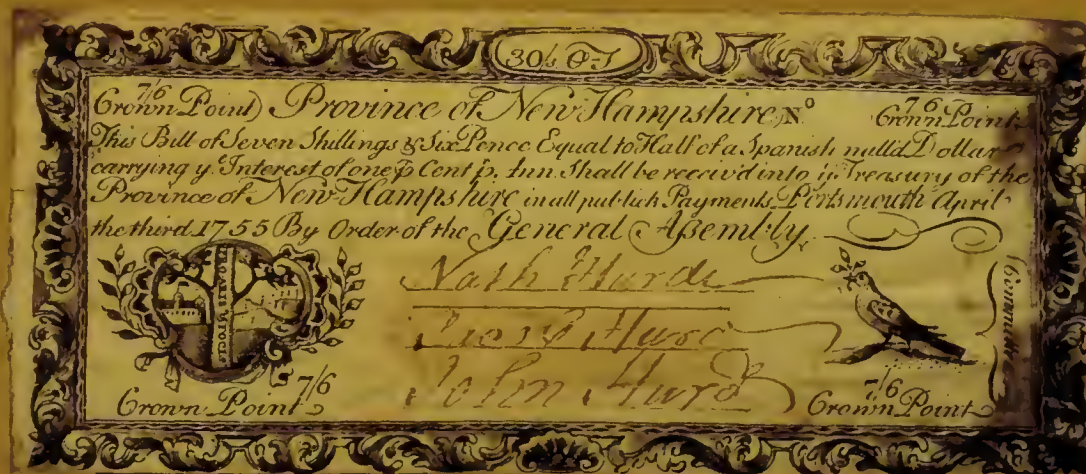 30/ O T
7/6 Crown Point) Province of New Hampshire No 7/6 Crown Point
This Bill of Seven Shillings & Six Pence Equal to Half of a Spanish mill'd Dollar
carrying y.e Interest of one p Cent p. Ann Shall be receiv'd into y.e Treasury of the
Province of New-Hampshire in all publick Payments Portsmouth April
the third 1755 By Order of the General Assembly
Nath Hurd
Hurd
John Hurd
Committee
7/6
Crown Point
7/6
Crown Point